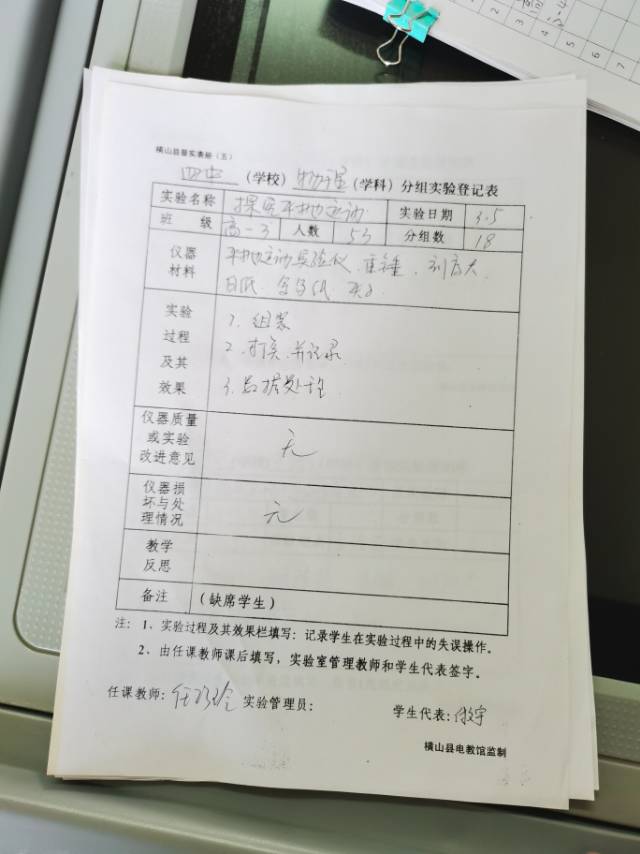 横山县普实表册（五）
四中（学校）物理（学科）分组实验登记表
实验名称 探究平抛运动 实验日期 3.5
班级 高一3 人数 53 分组数 18
仪器材料 平抛运动实验仪、重锤、
白纸、复写纸、夹子
实验过程及其效果 1、组装
2、打点、并记录
3、数据处理
仪器质量或实验改进意见 无
仪器损坏与处理情况 无
教学反思
备注 （缺席学生）
注： 1、实验过程及其效果栏填写：记录学生在实验过程中的失误操作。
2、由任课教师课后填写，实验室管理教师和学生代表签字。
任课教师：任 实验管理员： 学生代表：
横山县电教馆监制
3
4
5
6
7